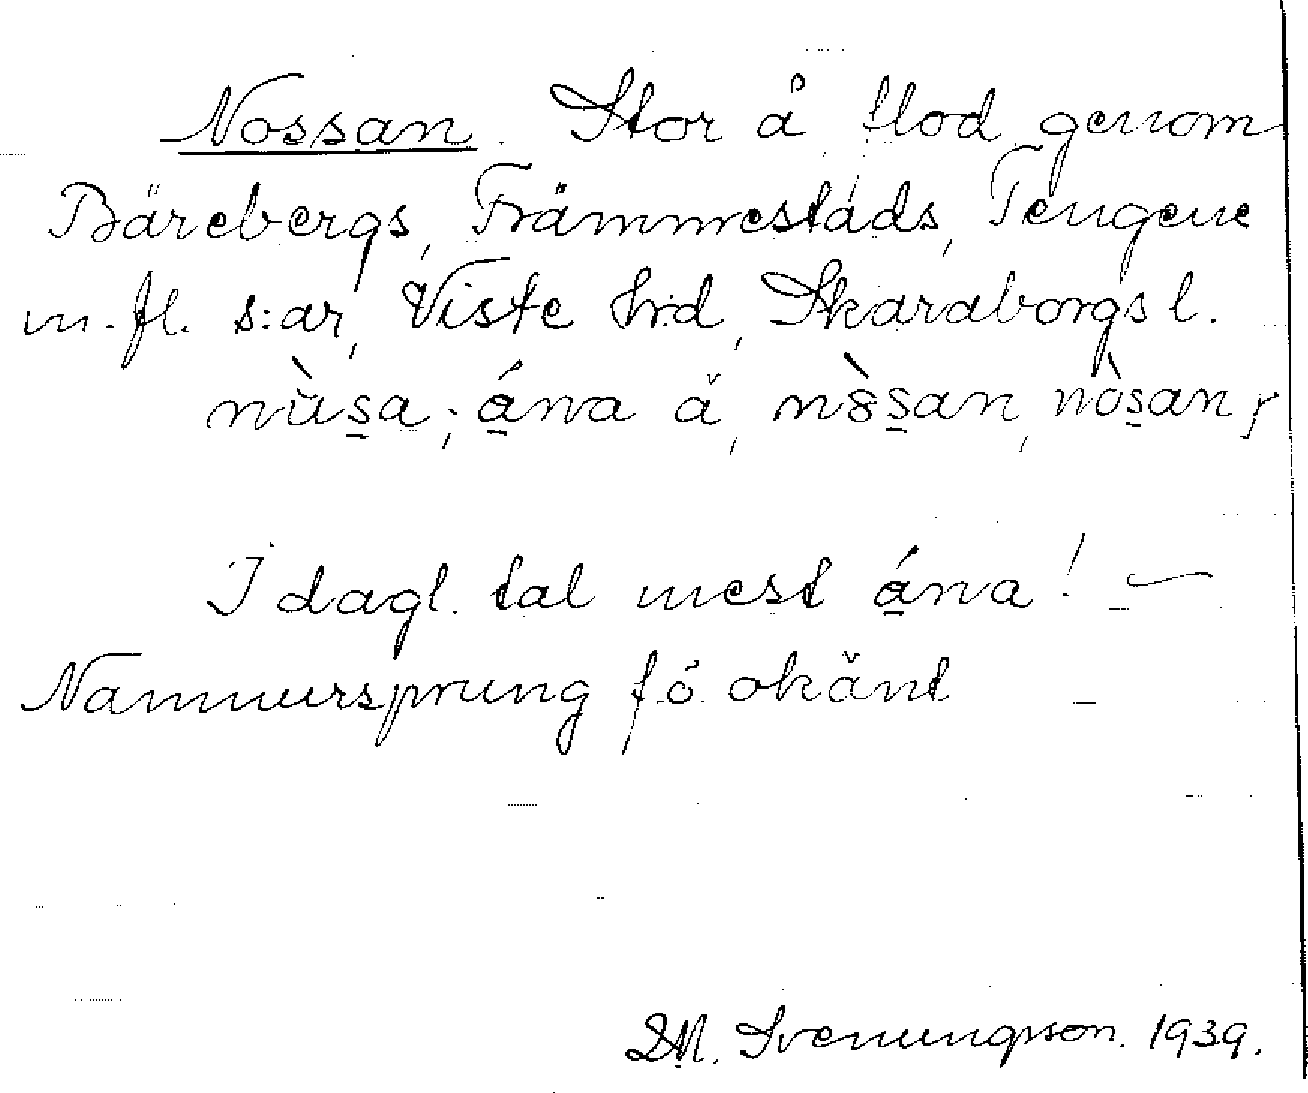 Nossan. Stor å, flod genom
Bärebergs, Främmestads, Tengene
m. fl. s:ar, Viste hrd, Skaraborgs l.
nùs̠a; á̠na å, n8̀s̠an, nòs̠an,
I dagl. tal mest á̠na! —
Namnursprung f ö. okänt
D.M. Svenungsson. 1939.